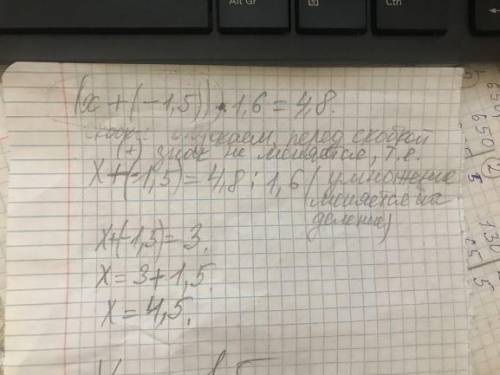 Alt Gr
Ctrl
(x + (-1,5)) · 1,6 = 4,8.
опускаем, перед скобкой
(+) знак не меняется, т.е.
x + (-1,5) = 4,8 : 1,6 (умножение
меняется на
деление)
x + (-1,5) = 3.
x = 3 + 1,5.
x = 4,5.